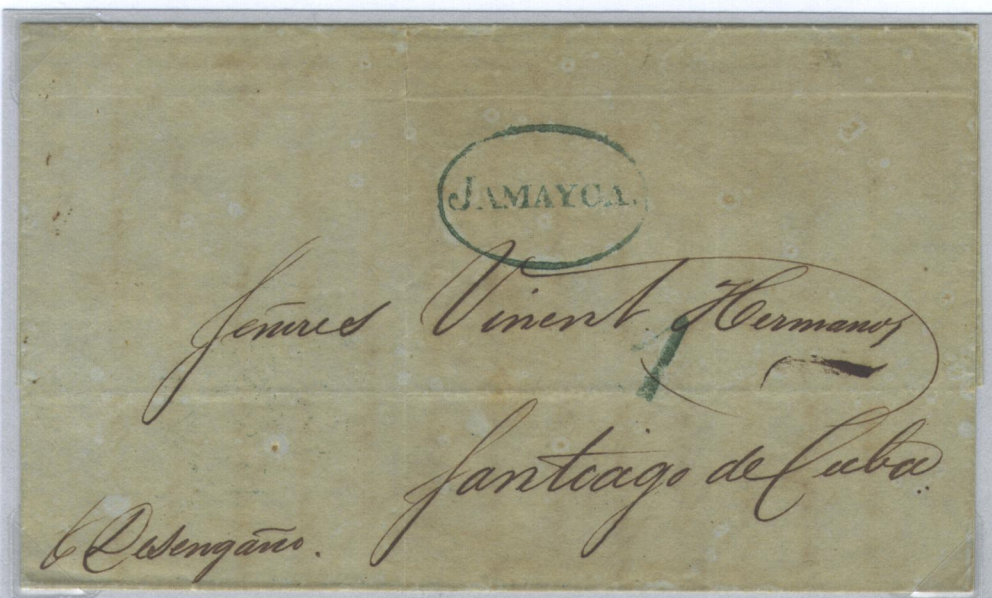 JAMAYCA.
Señores Vinent Hermanos
1
Santiago de Cuba
Desengaño.